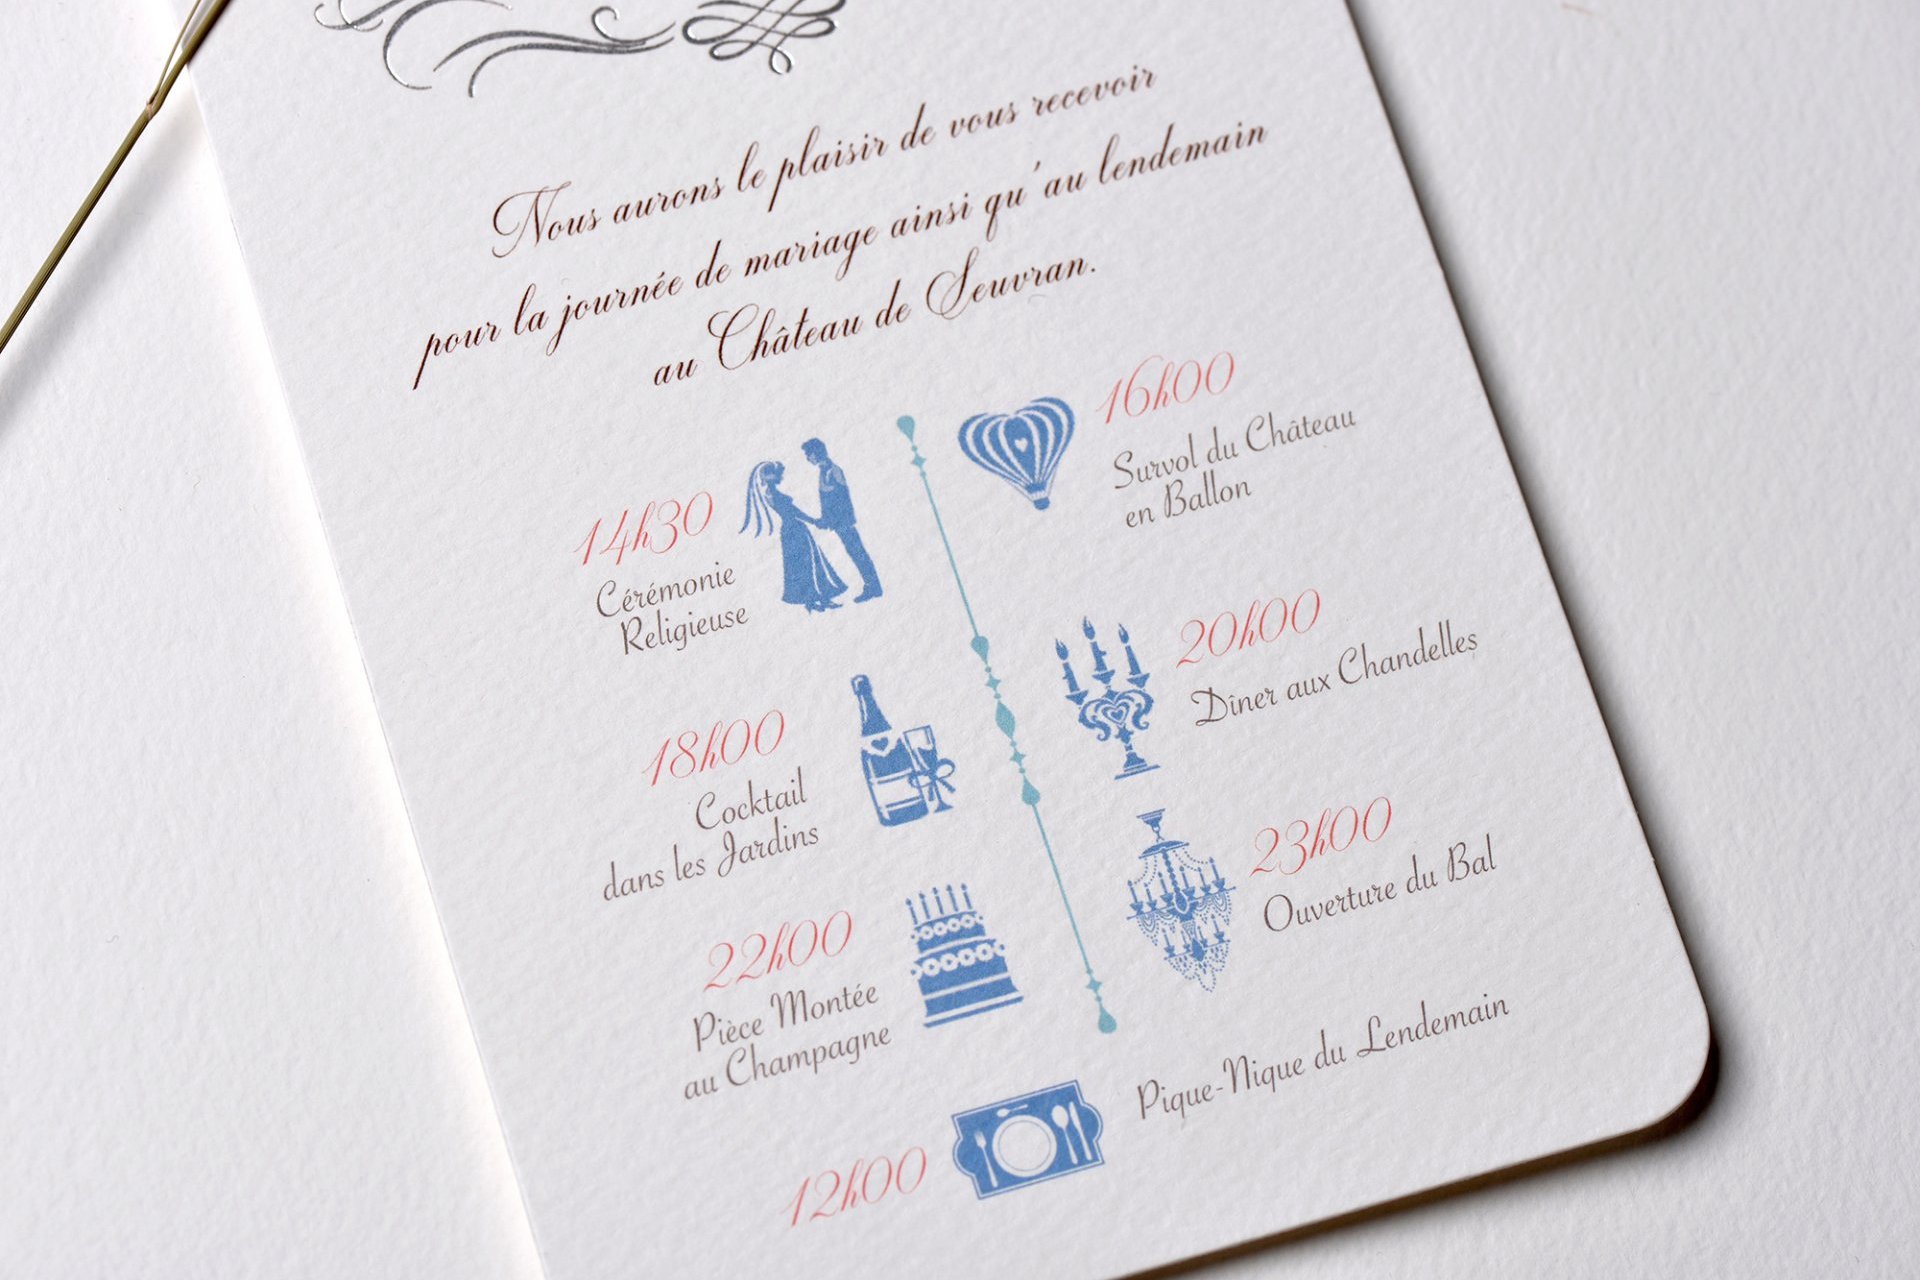 Nous aurons le plaisir de vous recevoir
pour la journée de mariage ainsi qu'au lendemain
au Château de Seuvran.
14h30
Cérémonie
Religieuse
16h00
Survol du Château
en Ballon
18h00
Cocktail
dans les Jardins
20h00
Dîner aux Chandelles
22h00
Pièce Montée
au Champagne
23h00
Ouverture du Bal
12h00
Pique-Nique du Lendemain